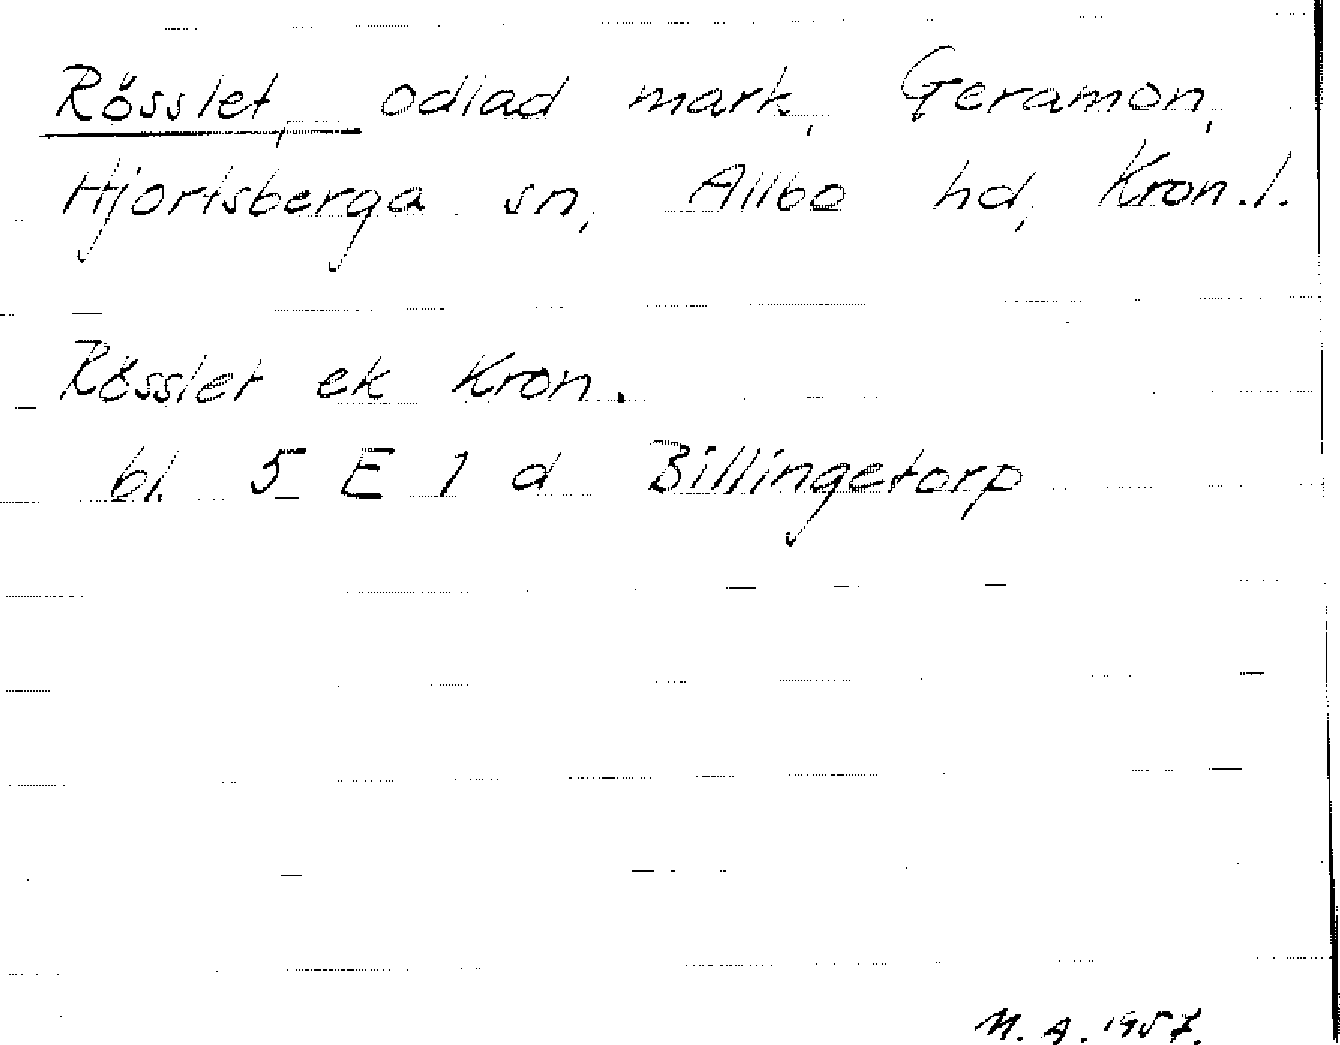 Rösslet, odlad mark, Geramon,
Hjortsberga sn, Allbo hd, Kron.l.
Rösslet ek Kron.
bl. 5 E 1 d Billingetorp
M. A. 1957.